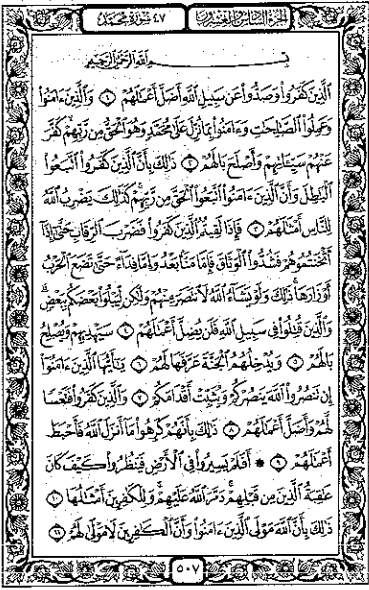 الجزء السادس والعشرون ٤٧ سورة محمد
بِسْمِ اللَّهِ الرَّحْمَٰنِ الرَّحِيمِ
الَّذِينَ كَفَرُوا وَصَدُّوا عَن سَبِيلِ اللَّهِ أَضَلَّ أَعْمَالَهُمْ ١ وَالَّذِينَ ءَامَنُوا
وَعَمِلُوا الصَّالِحَاتِ وَءَامَنُوا بِمَا نُزِّلَ عَلَىٰ مُحَمَّدٍ وَهُوَ الْحَقُّ مِن رَّبِّهِمْ كَفَّرَ
عَنْهُمْ سَيِّـَٔاتِهِمْ وَأَصْلَحَ بَالَهُمْ ٢ ذَٰلِكَ بِأَنَّ الَّذِينَ كَفَرُوا اتَّبَعُوا
الْبَاطِلَ وَأَنَّ الَّذِينَ ءَامَنُوا اتَّبَعُوا الْحَقَّ مِن رَّبِّهِمْ كَذَٰلِكَ يَضْرِبُ اللَّهُ
لِلنَّاسِ أَمْثَالَهُمْ ٣ فَإِذَا لَقِيتُمُ الَّذِينَ كَفَرُوا فَضَرْبَ الرِّقَابِ حَتَّىٰ إِذَا
أَثْخَنتُمُوهُمْ فَشُدُّوا الْوَثَاقَ فَإِمَّا مَنًّا بَعْدُ وَإِمَّا فِدَاءً حَتَّىٰ تَضَعَ الْحَرْبُ
أَوْزَارَهَا ذَٰلِكَ وَلَوْ يَشَاءُ اللَّهُ لَانتَصَرَ مِنْهُمْ وَلَٰكِن لِّيَبْلُوَا بَعْضَكُم بِبَعْضٍ
وَالَّذِينَ قُتِلُوا فِي سَبِيلِ اللَّهِ فَلَن يُضِلَّ أَعْمَالَهُمْ ٤ سَيَهْدِيهِمْ وَيُصْلِحُ
بَالَهُمْ ٥ وَيُدْخِلُهُمُ الْجَنَّةَ عَرَّفَهَا لَهُمْ ٦ يَٰأَيُّهَا الَّذِينَ ءَامَنُوا
إِن تَنصُرُوا اللَّهَ يَنصُرْكُمْ وَيُثَبِّتْ أَقْدَامَكُمْ ٧ وَالَّذِينَ كَفَرُوا فَتَعْسًا
لَّهُمْ وَأَضَلَّ أَعْمَالَهُمْ ٨ ذَٰلِكَ بِأَنَّهُمْ كَرِهُوا مَا أَنزَلَ اللَّهُ فَأَحْبَطَ
أَعْمَالَهُمْ ٩ ۞ أَفَلَمْ يَسِيرُوا فِي الْأَرْضِ فَيَنظُرُوا كَيْفَ كَانَ
عَاقِبَةُ الَّذِينَ مِن قَبْلِهِمْ دَمَّرَ اللَّهُ عَلَيْهِمْ وَلِلْكَافِرِينَ أَمْثَالُهَا ١٠
ذَٰلِكَ بِأَنَّ اللَّهَ مَوْلَى الَّذِينَ ءَامَنُوا وَأَنَّ الْكَافِرِينَ لَا مَوْلَىٰ لَهُمْ ١١
٥٠٧